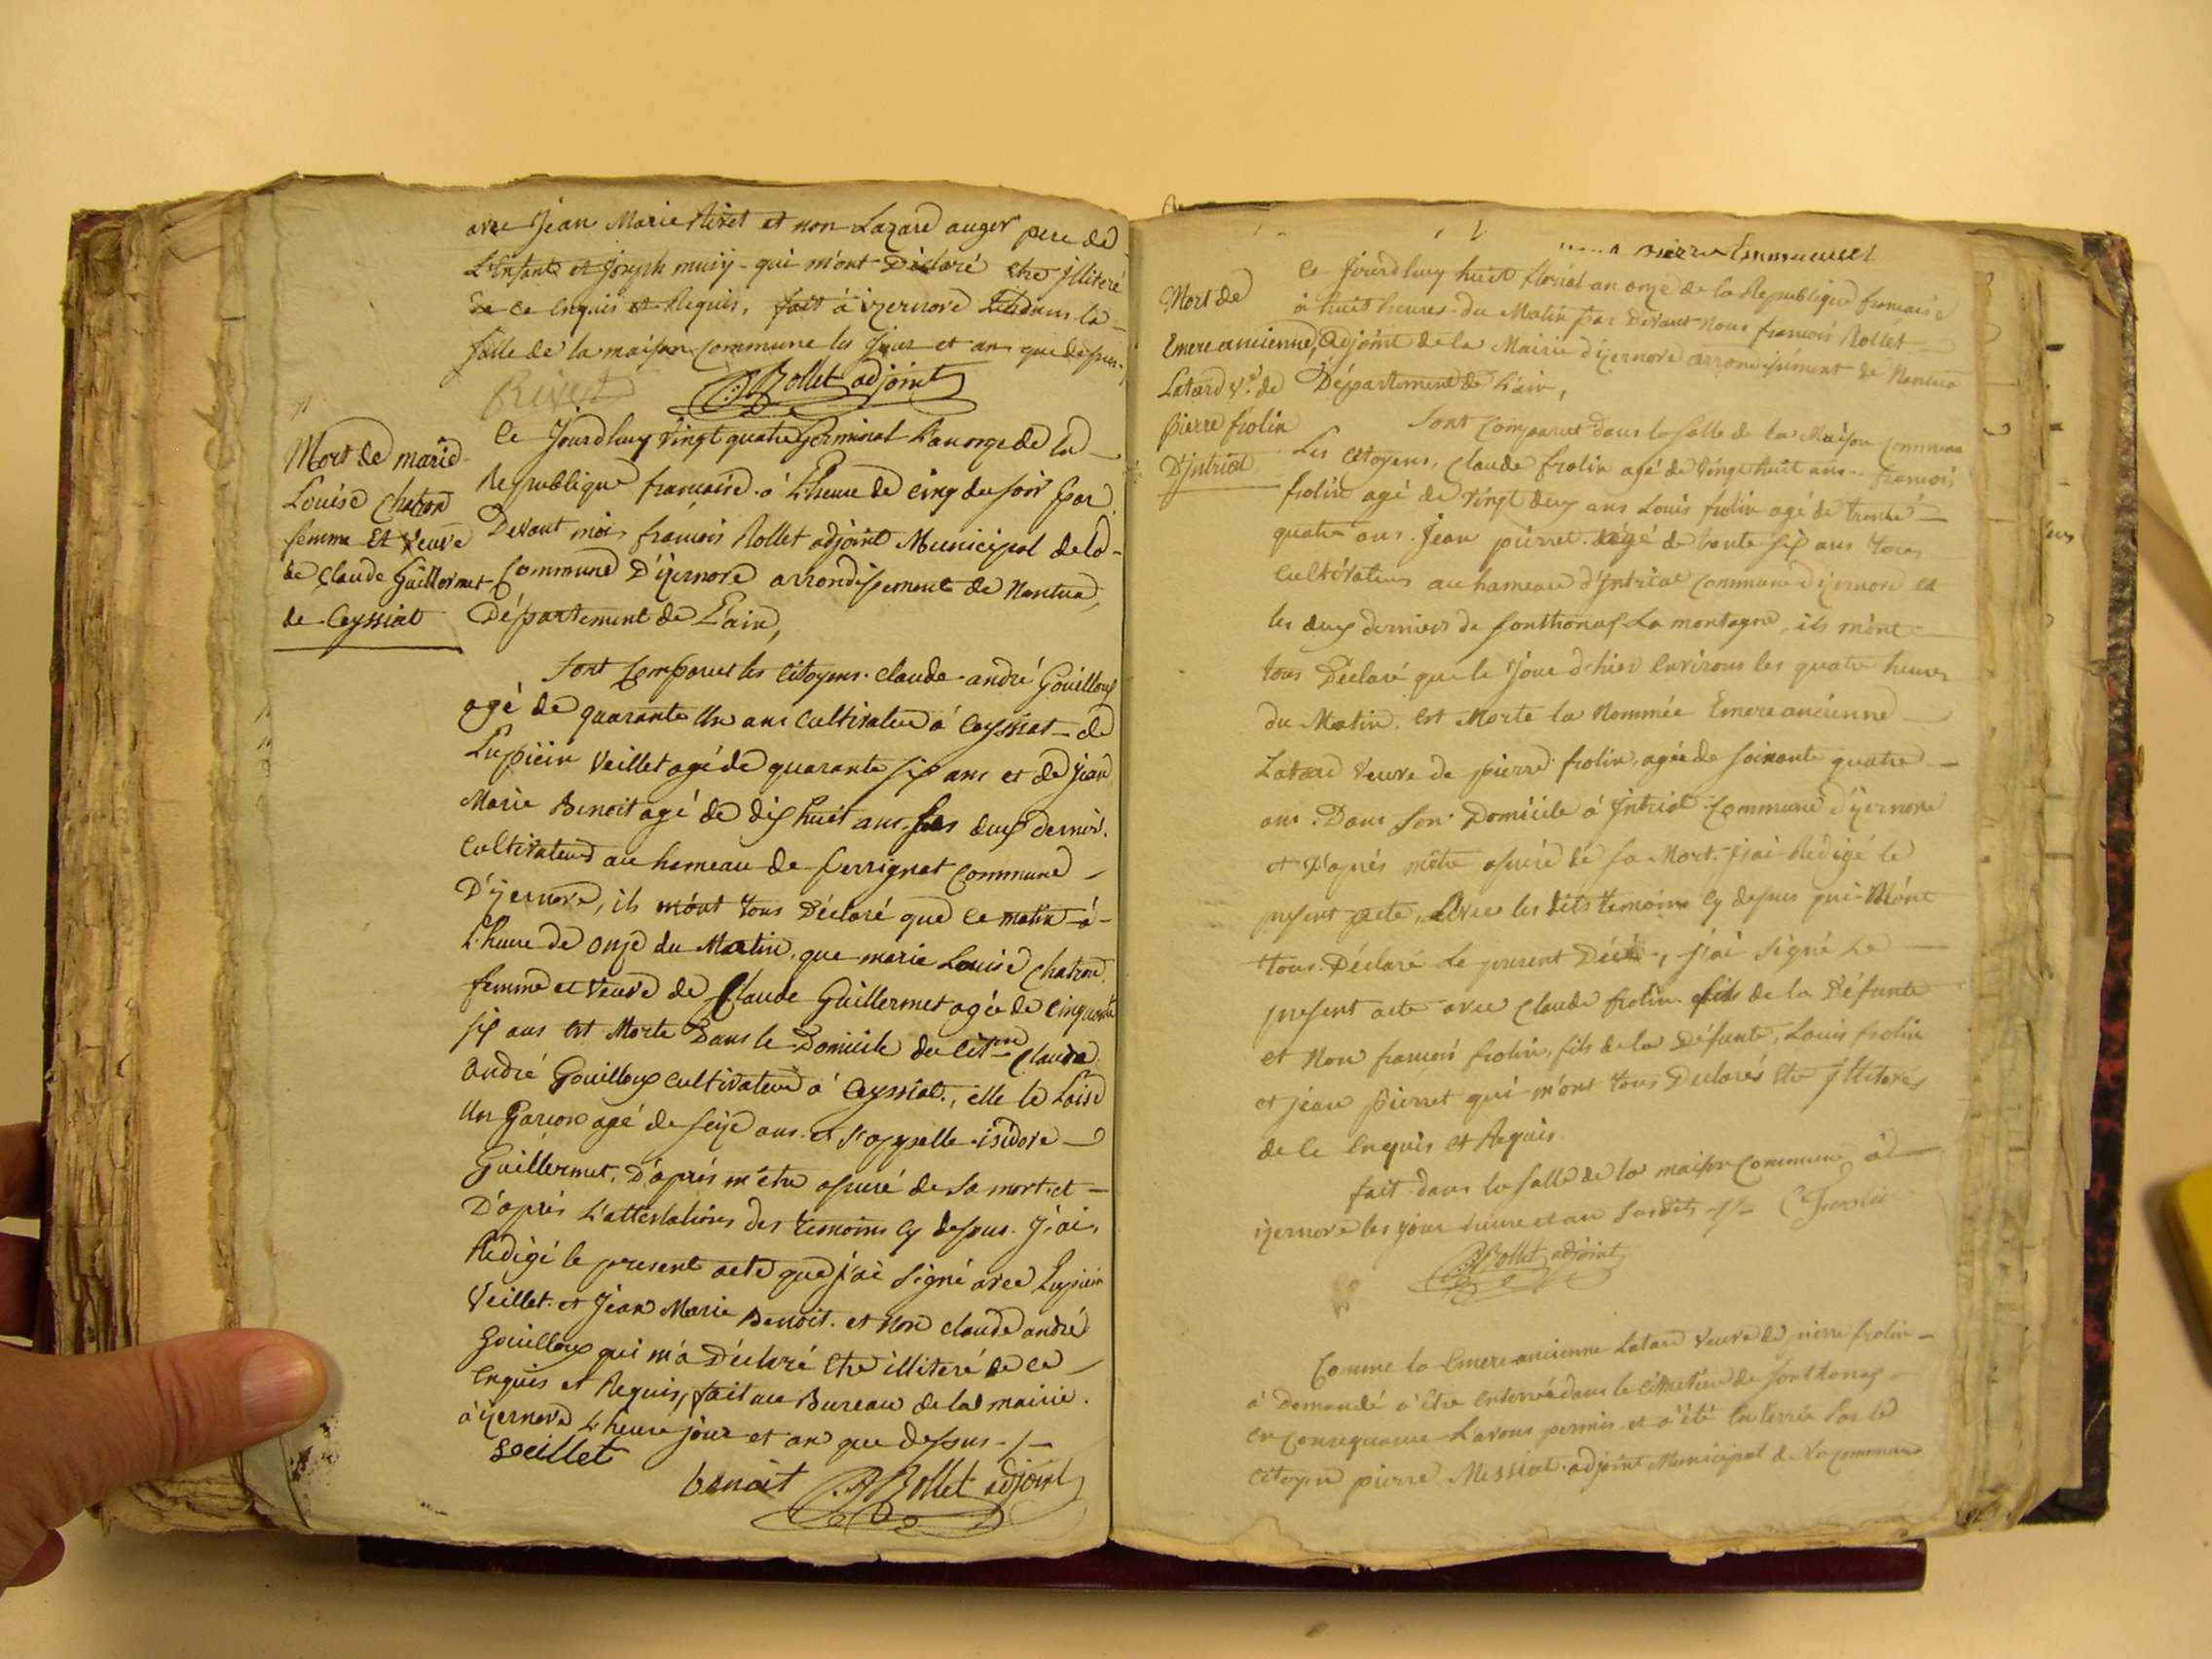 avec Jean Marie Rivet et non Lazard auger pere de
L'Enfant et Joseph muiy - qui m'ont Déclaré Etre Jlliteré
De ce Enquis et Requis, fait à izernore dans la
salle de la maison Commune les Jour et an que dessus.
Rivet
Rollet adjoint
Mort de marie
Louise Chatron
femme Et Veuve
de Claude Guillermet
de Ceyssiat
Ce Jourdhuy vingt quatre Germinal L'an onze de la
Republique francaise à L'heure de cinq du soir Par
Devant moi francois Rollet adjoint Municipal de la
Commune D'izernore arrondissement de Nantua,
Département de L'ain,
Sont Comparut les Citoyens Claude andré Gouilloux
agé de quarante Un ans Cultivateur à Ceyssiat - de
Lupicin Veillet agé de quarante six ans et de Jean
Marie Benoit agé de dix huit ans, Les deux dernier.
Cultivateurs au hameau de Perrignat Commune
D'izernore, ils m'ont tous Déclaré que ce matin à
L'heure de onze du Matin que marie Louise Chatron
femme et veuve de Claude Guillermet agée de Cinquante
six ans Est Morte Dans le Domicile du Citoyen Claude
André Gouilloux cultivateur à Ceyssiat, elle le Laise
Un Garcon agé de seize ans et s'appelle isidore
Guillermet, D'aprés m'être assuré de sa mort et
D'aprés L'attestations des temoins Cy dessus. J'ai
Redigé le present acte que j'ai Signé avec Lupicin
Veillet et Jean Marie Benoit. et Non claude andré
Gouilloux qui m'a Déclaré Etre illiteré de ce
Enquis et Requis, fait au Bureau de la mairie.
à izernore L'heure jour et an que dessus -/-
Veillet
benoit Rollet adjoint
Pierre Emmanuel
Mort de
Emereancienne
Latard Ve. de
pierre frolin
D'jntriat
Ce Jourdhuy huit floréal an onze de la Republique francaise
à huit heures du Matin par Devant Nous francois Rollet
Adjoint de la Mairie d'izernore arrondissement de Nantua
Département de L'ain,
Sont Comparut dans la salle de la Maison Commune
Les Citoyens, Claude frolin agé de Vingt huit ans francois
frolin agé de Vingt deux ans Louis frolin agé de trente
quatre ans. Jean pierret agé de trente six ans tous
Cultivateurs au hameau d'jntriat Commune d'izernore et
les deux derniers de sonthonas La montagne, ils m'ont
tous Déclaré que le Jour d'hier Environs les quatre heures
du Matin. Est Morte la Nommée Emereancienne
Latard Veuve de pierre frolin agée de soixante quatre
ans Dans son Domicile à Jntriat Commune d'izernore
et D'aprés mêtre assuré de sa Mort. J'ai Redigé le
present acte, Avec les dits temoins Cy dessus qui M'ont
tous Déclaré le present Décé, j'ai Signé Le
present acte avec Claude frolin fils de la Défunte
et Non francois frolin, fils de la Défunte, Louis frolin
et jean pierret qui m'ont tous Declarés Etre Jlliterés
de Ce Enquis et Requis.
fait dans la salle de la maison Commune à
izernore les jour heure et an susdits -/- C Frolin
Rollet adjoint
Comme la Emereancienne Latard Veuve de pierre frolin
à Demandé à être Enterrée dans le Cimetiere de sonthonas
en Consequence L'avons permis et à été Enterrée Par le
Citoyen pierre Messiat adjoint Municipal de la Commune